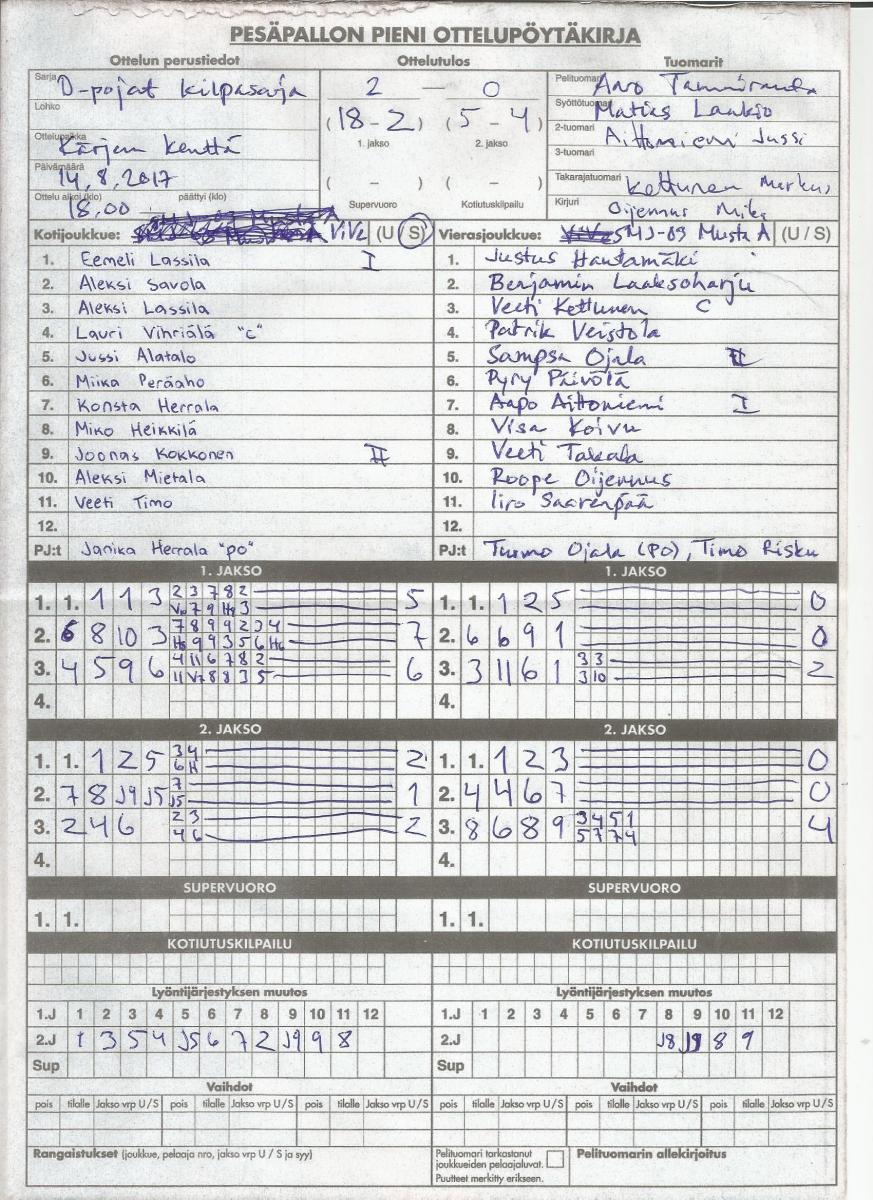 PESÄPALLON PIENI OTTELUPÖYTÄKIRJA
Ottelun perustiedot Ottelutulos Tuomarit
Sarja D-pojat kilpasarja 2 — 0 Pelituomari Aaro
Lohko (18 - 2) (5 - 4) Syöttötuomari Matias Laakso
1. jakso 2. jakso 2-tuomari Aittoniemi Jussi
Ottelupaikka Kärjen kenttä 3-tuomari
Päivämäärä 14.8.2017 ( - ) ( - ) Takarajatuomari Kettunen Markus
Ottelu alkoi (klo) 18.00 päättyi (klo) Supervuoro Kotiutuskilpailu Kirjuri Oijennus Mika
Kotijoukkue: ViVe (U / S) Vierasjoukkue: SMJ-09 Musta A (U / S)
1. Eemeli Lassila I 1. Justus Hautamäki
2. Aleksi Savola 2. Benjamin Laaksoharju
3. Aleksi Lassila 3. Veeti Kettunen C
4. Lauri Vihriälä "c" 4. Patrik Veistola
5. Jussi Alatalo 5. Sampsa Ojala II
6. Miika Peräaho 6. Pyry Päivölä
7. Konsta Herrala 7. Aapo Aittoniemi I
8. Miko Heikkilä 8. Visa Koivu
9. Joonas Kokkonen II 9. Veeti Takala
10. Aleksi Mietala 10. Roope Oijennus
11. Veeti Timo 11. Iiro Saarenpää
12. 12.
PJ:t Janika Herrala "po" PJ:t Tuomo Ojala (PO), Timo Risku
1. JAKSO 1. JAKSO
1. 1. 1 1 3 2 3 7 8 2 5 1. 1. 1 2 5 0
7 9 3
2. 6 8 10 3 7 8 9 9 2 3 4 7 2. 6 6 9 1 0
9 9 3 5 6
3. 4 5 9 6 4 11 6 7 8 2 6 3. 3 11 6 1 3 3 2
11 V7 8 8 3 5 3 10
4. 4.
2. JAKSO 2. JAKSO
1. 1. 1 2 5 3 4 2 1. 1. 1 2 3 0
6 H
2. 7 8 J9 J5 7 1 2. 4 4 6 7 0
J5
3. 2 4 6 2 3 2 3. 8 6 8 9 3 4 5 1 4
4 6 5 7 7 4
4. 4.
SUPERVUORO SUPERVUORO
1. 1. 1. 1.
KOTIUTUSKILPAILU KOTIUTUSKILPAILU
Lyöntijärjestyksen muutos Lyöntijärjestyksen muutos
1.J 1 2 3 4 5 6 7 8 9 10 11 12 1.J 1 2 3 4 5 6 7 8 9 10 11 12
2.J 1 3 5 4 J5 6 7 2 J9 9 8 2.J J8 J9 8 9
Sup Sup
Vaihdot Vaihdot
pois tilalle Jakso vrp U / S pois tilalle Jakso vrp U / S pois tilalle Jakso vrp U / S pois tilalle Jakso vrp U / S pois tilalle Jakso vrp U / S pois tilalle Jakso vrp U / S
Rangaistukset (joukkue, pelaaja nro, jakso vrp U / S ja syy) Pelituomari tarkastanut Pelituomarin allekirjoitus
joukkueiden pelaajaluvat.
Puutteet merkitty erikseen.